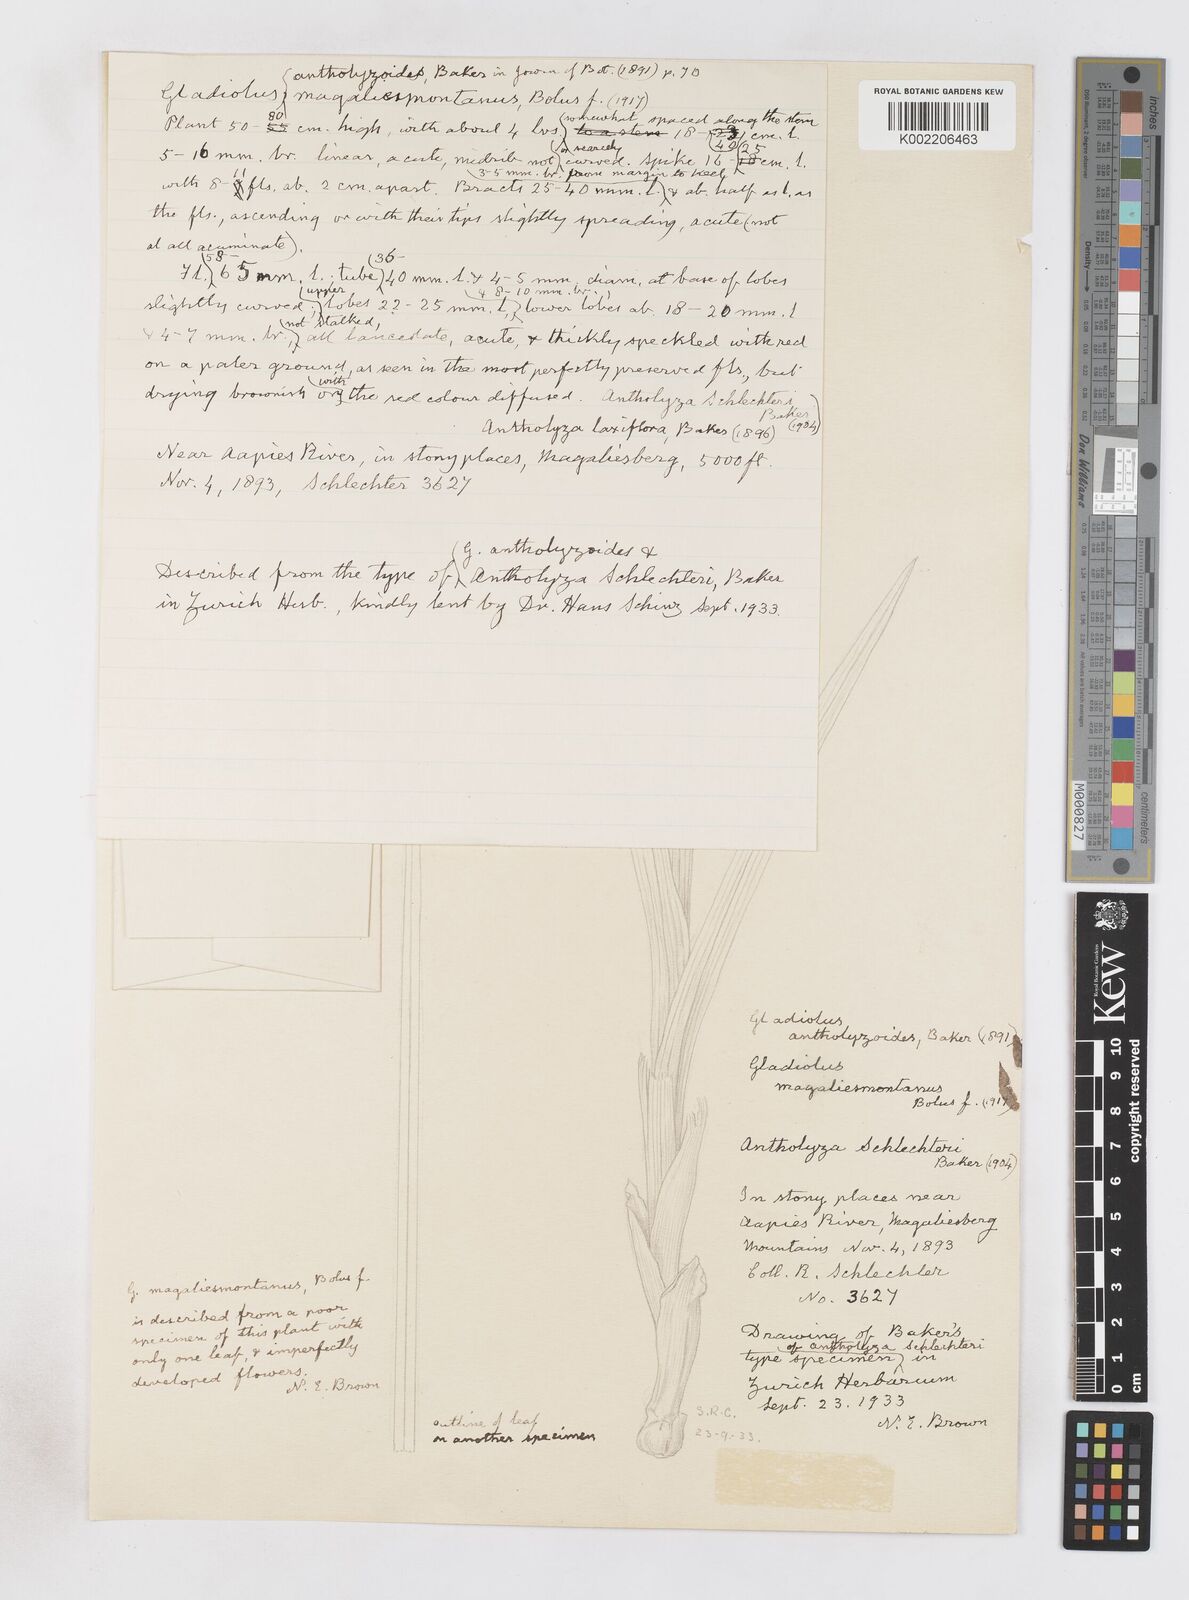 antholyzoides, Baker in Journ. of Bot. (1891) p. 70
Gladiolus magaliesmontanus, Bolus f. (1917)
80 somewhat spaced along the stem
Plant 50–55 cm. high, with about 4 lvs. to a stem 18– cm. l.
or scarcely 40 25
5–16 mm. br. linear, acute, midrib not curved. Spike 16–18 cm. l.
11 3–5 mm. br. from margin to keel
with 8– fls. ab. 2 cm. apart. Bracts 25–40 mm. l. & ab. half as l. as
the fls., ascending or with their tips slightly spreading, acute (not
at all acuminate).
58– 36–
Fl. 65 mm. l. tube 40 mm. l. & 4–5 mm. diam. at base of lobes
upper & 8–10 mm. br.
slightly curved, lobes 22–25 mm. l., lower lobes ab. 18–20 mm. l
not stalked,
& 4–7 mm. br., all lanceolate, acute, & thickly speckled with red
on a paler ground, as seen in the most perfectly preserved fls., but
with
drying brownish or the red colour diffused. Antholyza Schlechteri
Baker (1904)
Antholyza laxiflora, Baker (1896)
Near Aapies River, in stony places, Magaliesberg, 5000 ft.
Nov. 4, 1893, Schlechter 3627
G. antholyzoides &
Described from the type of Antholyza Schlechteri, Baker
in Zurich Herb., kindly lent by Dr. Hans Schinz Sept. 1933.
ROYAL BOTANIC GARDENS KEW
K002206463
Gladiolus
antholyzoides, Baker (1891)
Gladiolus
magaliesmontanus
Bolus f. (1917)
Antholyza Schlechteri
Baker (1904)
In stony places near
Aapies River, Magaliesberg
Mountains Nov. 4, 1893
Coll. R. Schlechter
No. 3627
Drawing of Baker's
of Antholyza Schlechteri
type specimen in
Zurich Herbarium
Sept. 23. 1933
N. E. Brown
G. magaliesmontanus, Bolus f.
is described from a poor
specimen of this plant with
only one leaf, & imperfectly
developed flowers.
N. E. Brown
outline of leaf
on another specimen
S.R.C.
23-9-33.
inches
centimeters
Density
Don Williams
M000827
Kew
Royal Botanic Gardens
copyright reserved
0 1 2 3 4 5 6 7 8 9 10
cm